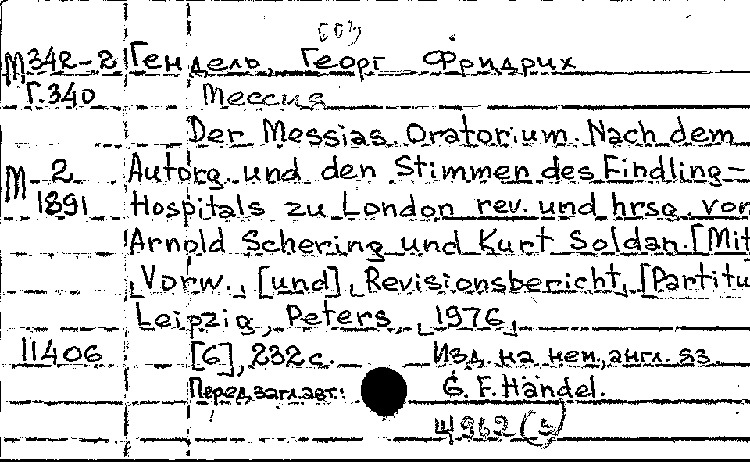 М 342-2 Гендель, Георг Фридрих
Г.340 Мессия
Der Messias. Oratorium. Nach dem
М 2 Autorg. und den Stimmen des Findling-
1891 Hospitals zu London rev. und hrsg. von
Arnold Schering und Kurt Soldan. [Mit
Vorw., [und] Revisionsbericht, [Partitu
Leipzig, Peters, 1976,
11406 [6], 232 с. Изд. на нем., англ. яз.
Перед заглавт: G. F. Händel.
Щ962(3)